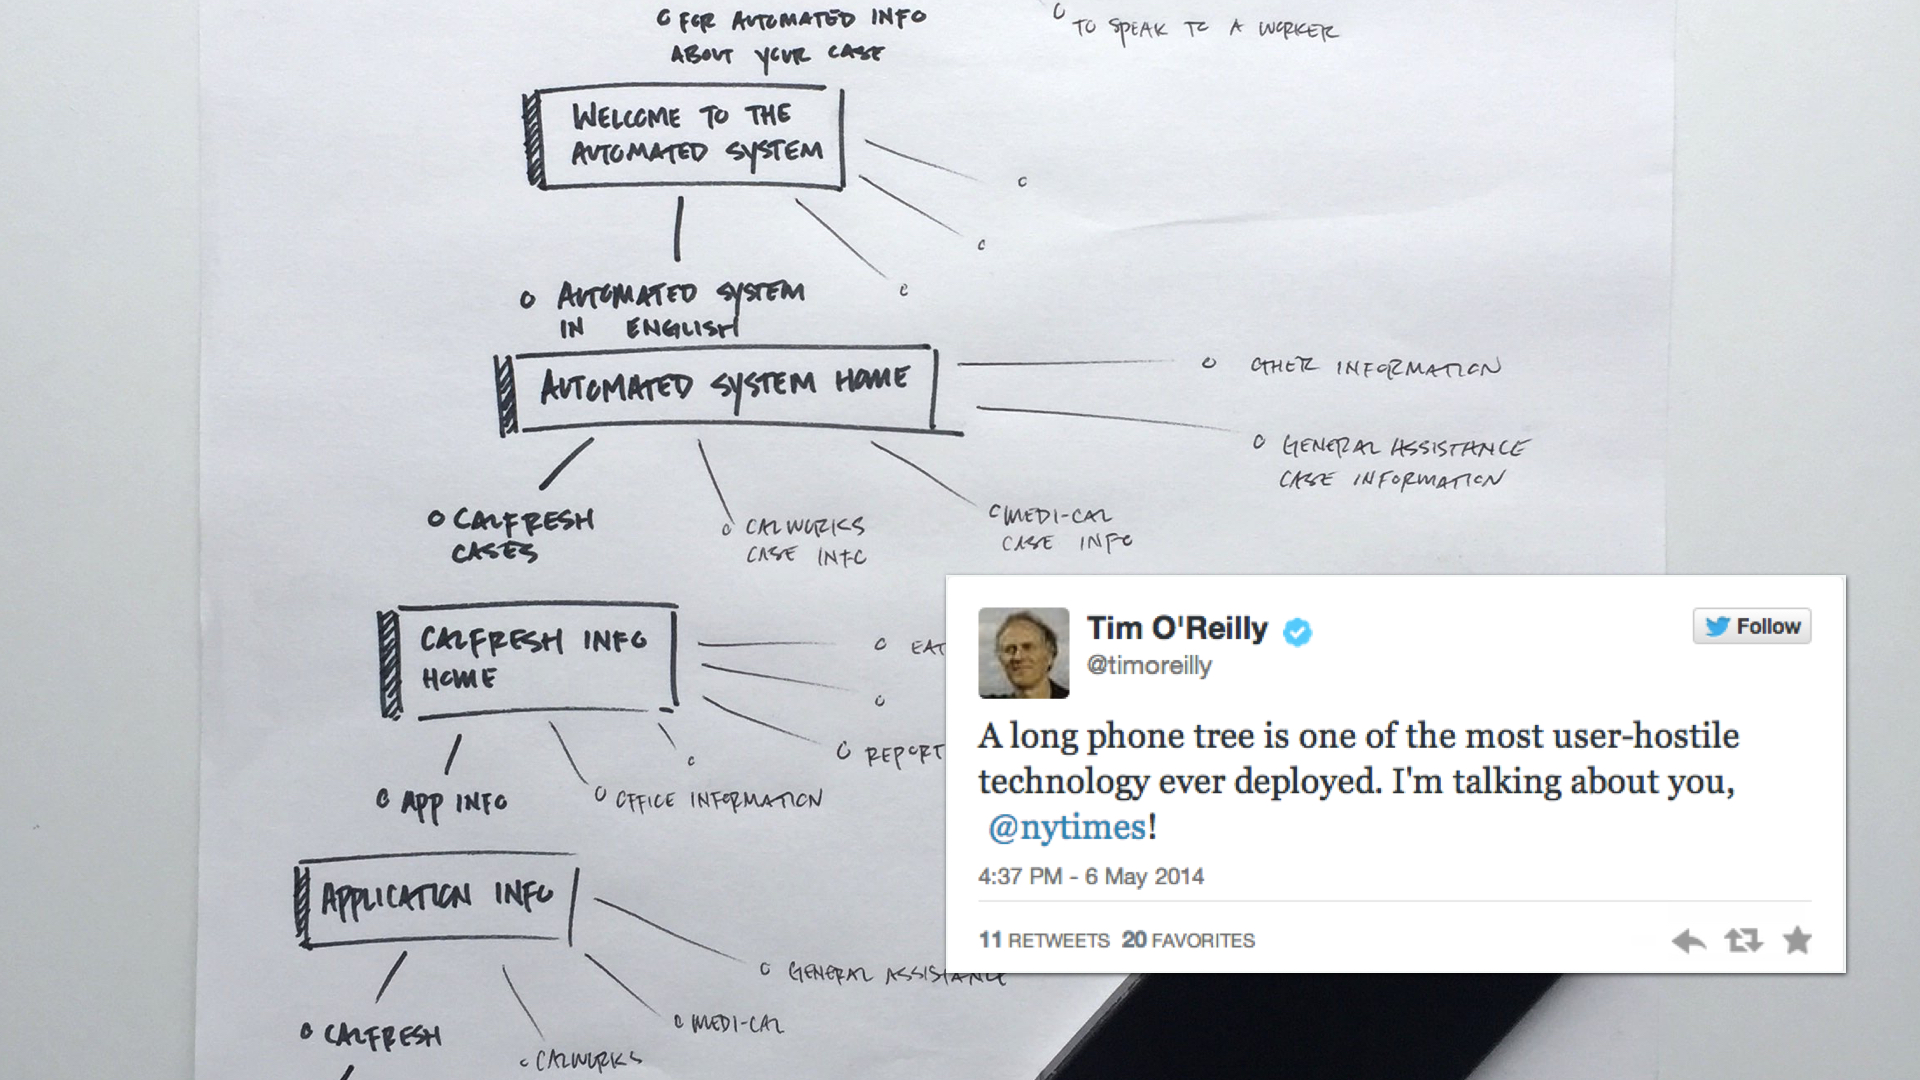 O FOR AUTOMATED INFO
ABOUT YOUR CASE
O TO SPEAK TO A WORKER
WELCOME TO THE
AUTOMATED SYSTEM
O AUTOMATED SYSTEM
IN ENGLISH
AUTOMATED SYSTEM HOME
O OTHER INFORMATION
O GENERAL ASSISTANCE
CASE INFORMATION
O CALFRESH
CASES
O CALWORKS
CASE INFO
O MEDI-CAL
CASE INFO
CALFRESH INFO
HOME
O
O REPORT
O APP INFO
O OFFICE INFORMATION
APPLICATION INFO
O GENERAL ASSISTANCE
O MEDI-CAL
O CALFRESH
O CALWORKS
Tim O'Reilly
@timoreilly
Follow
A long phone tree is one of the most user-hostile
technology ever deployed. I'm talking about you,
@nytimes!
4:37 PM - 6 May 2014
11 RETWEETS 20 FAVORITES